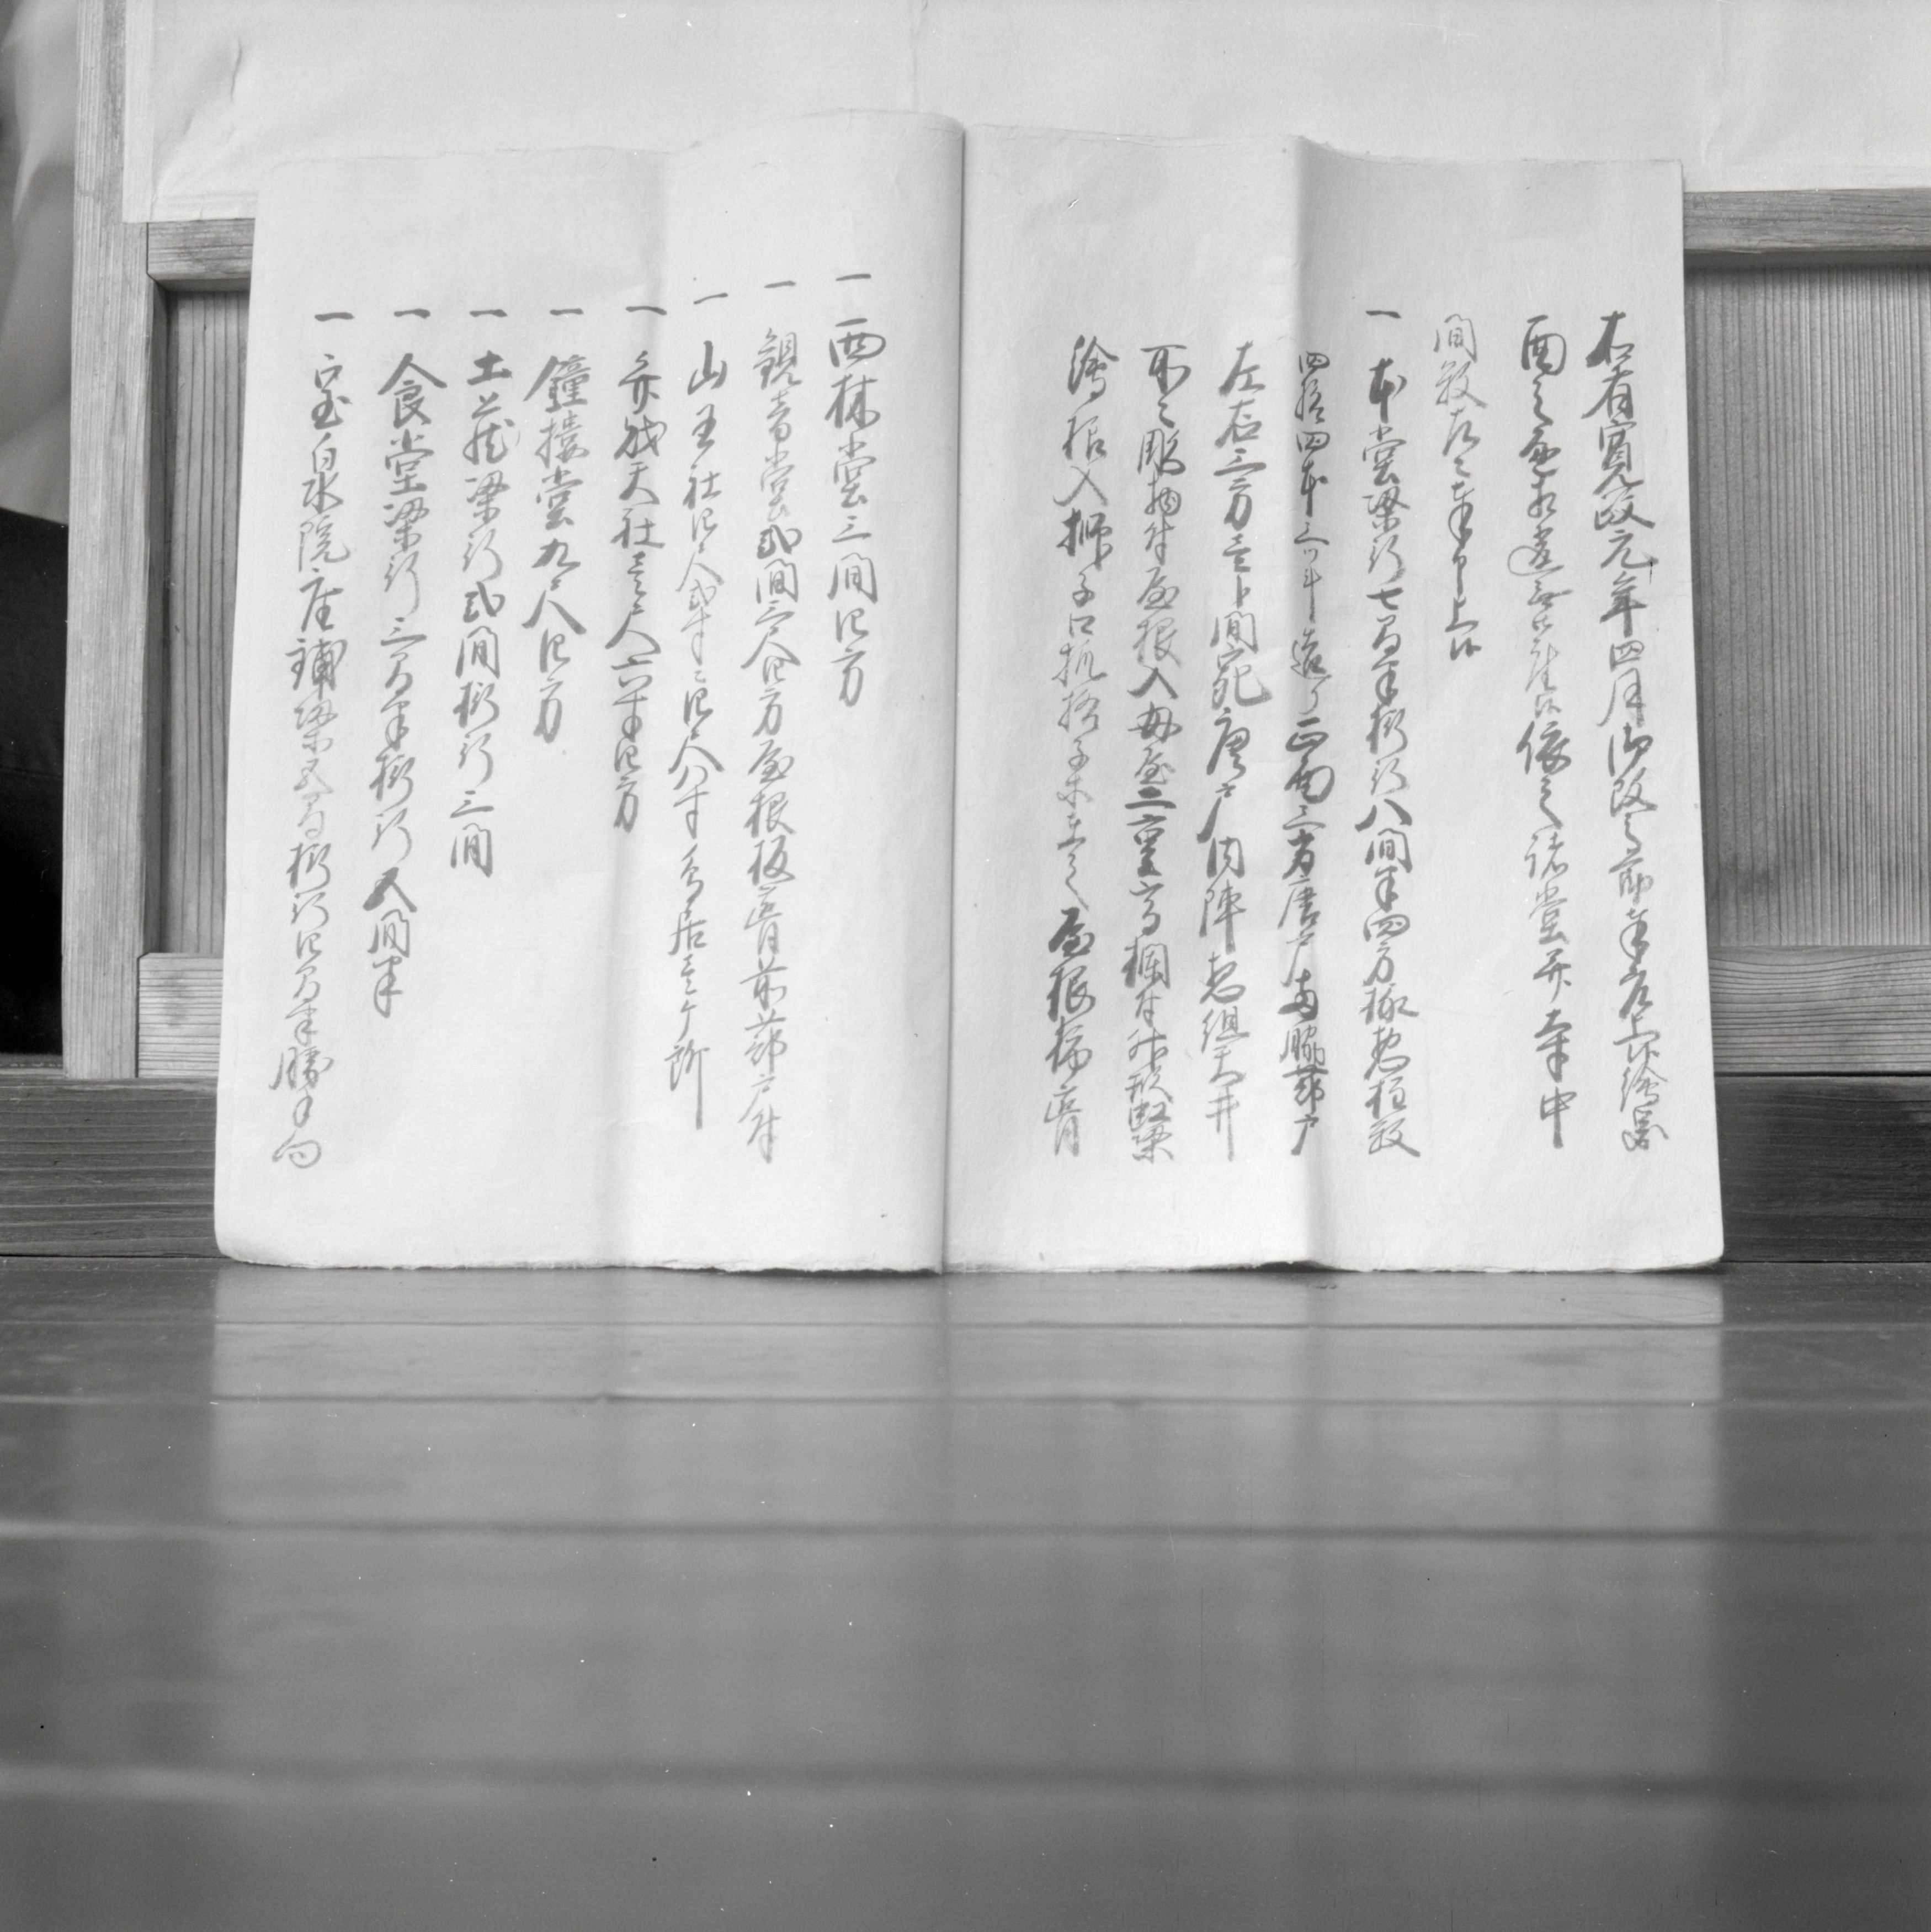 右者寛政元年四月御改之節奉差上候絵図
面之通相違無御座候依之諸堂并寺中
間数左ニ奉申上候
一 本堂梁行七間半桁行八間半四方椽惣柱数
四拾四本三ツ斗造り正面三方唐戸両脇蔀戸
左右三方壱間宛唐戸内陣惣組天井
所之彫物付屋根入母屋二重高欄付外形竪梁
絵組入獅子口格子木 屋根栫葺
一 西林堂三間四方
一 観音堂弐間三尺四方屋根板葺前蔀戸付
一 山王社四尺弐寸ニ四尺八寸鳥居壱ケ所
一 弁財天社壱尺六寸四方
一 鐘撞堂九尺四方
一 土蔵梁行弐間桁行三間
一 食堂梁行三間半桁行五間半
一 宝泉院座舗梁五間桁行四間半勝手向